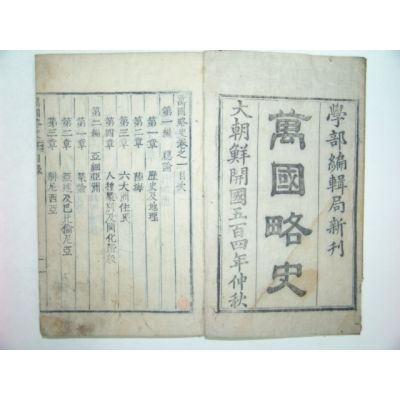 學部編輯局新刊
萬國略史
大朝鮮開國五百四年仲秋
萬國略史卷之一目次
第一編 總論
第一章 歷史及地理
第二章 陸海
第三章 六大洲住民
第四章
第二編 亞細亞洲
第一章 槩論
第二章
第三章